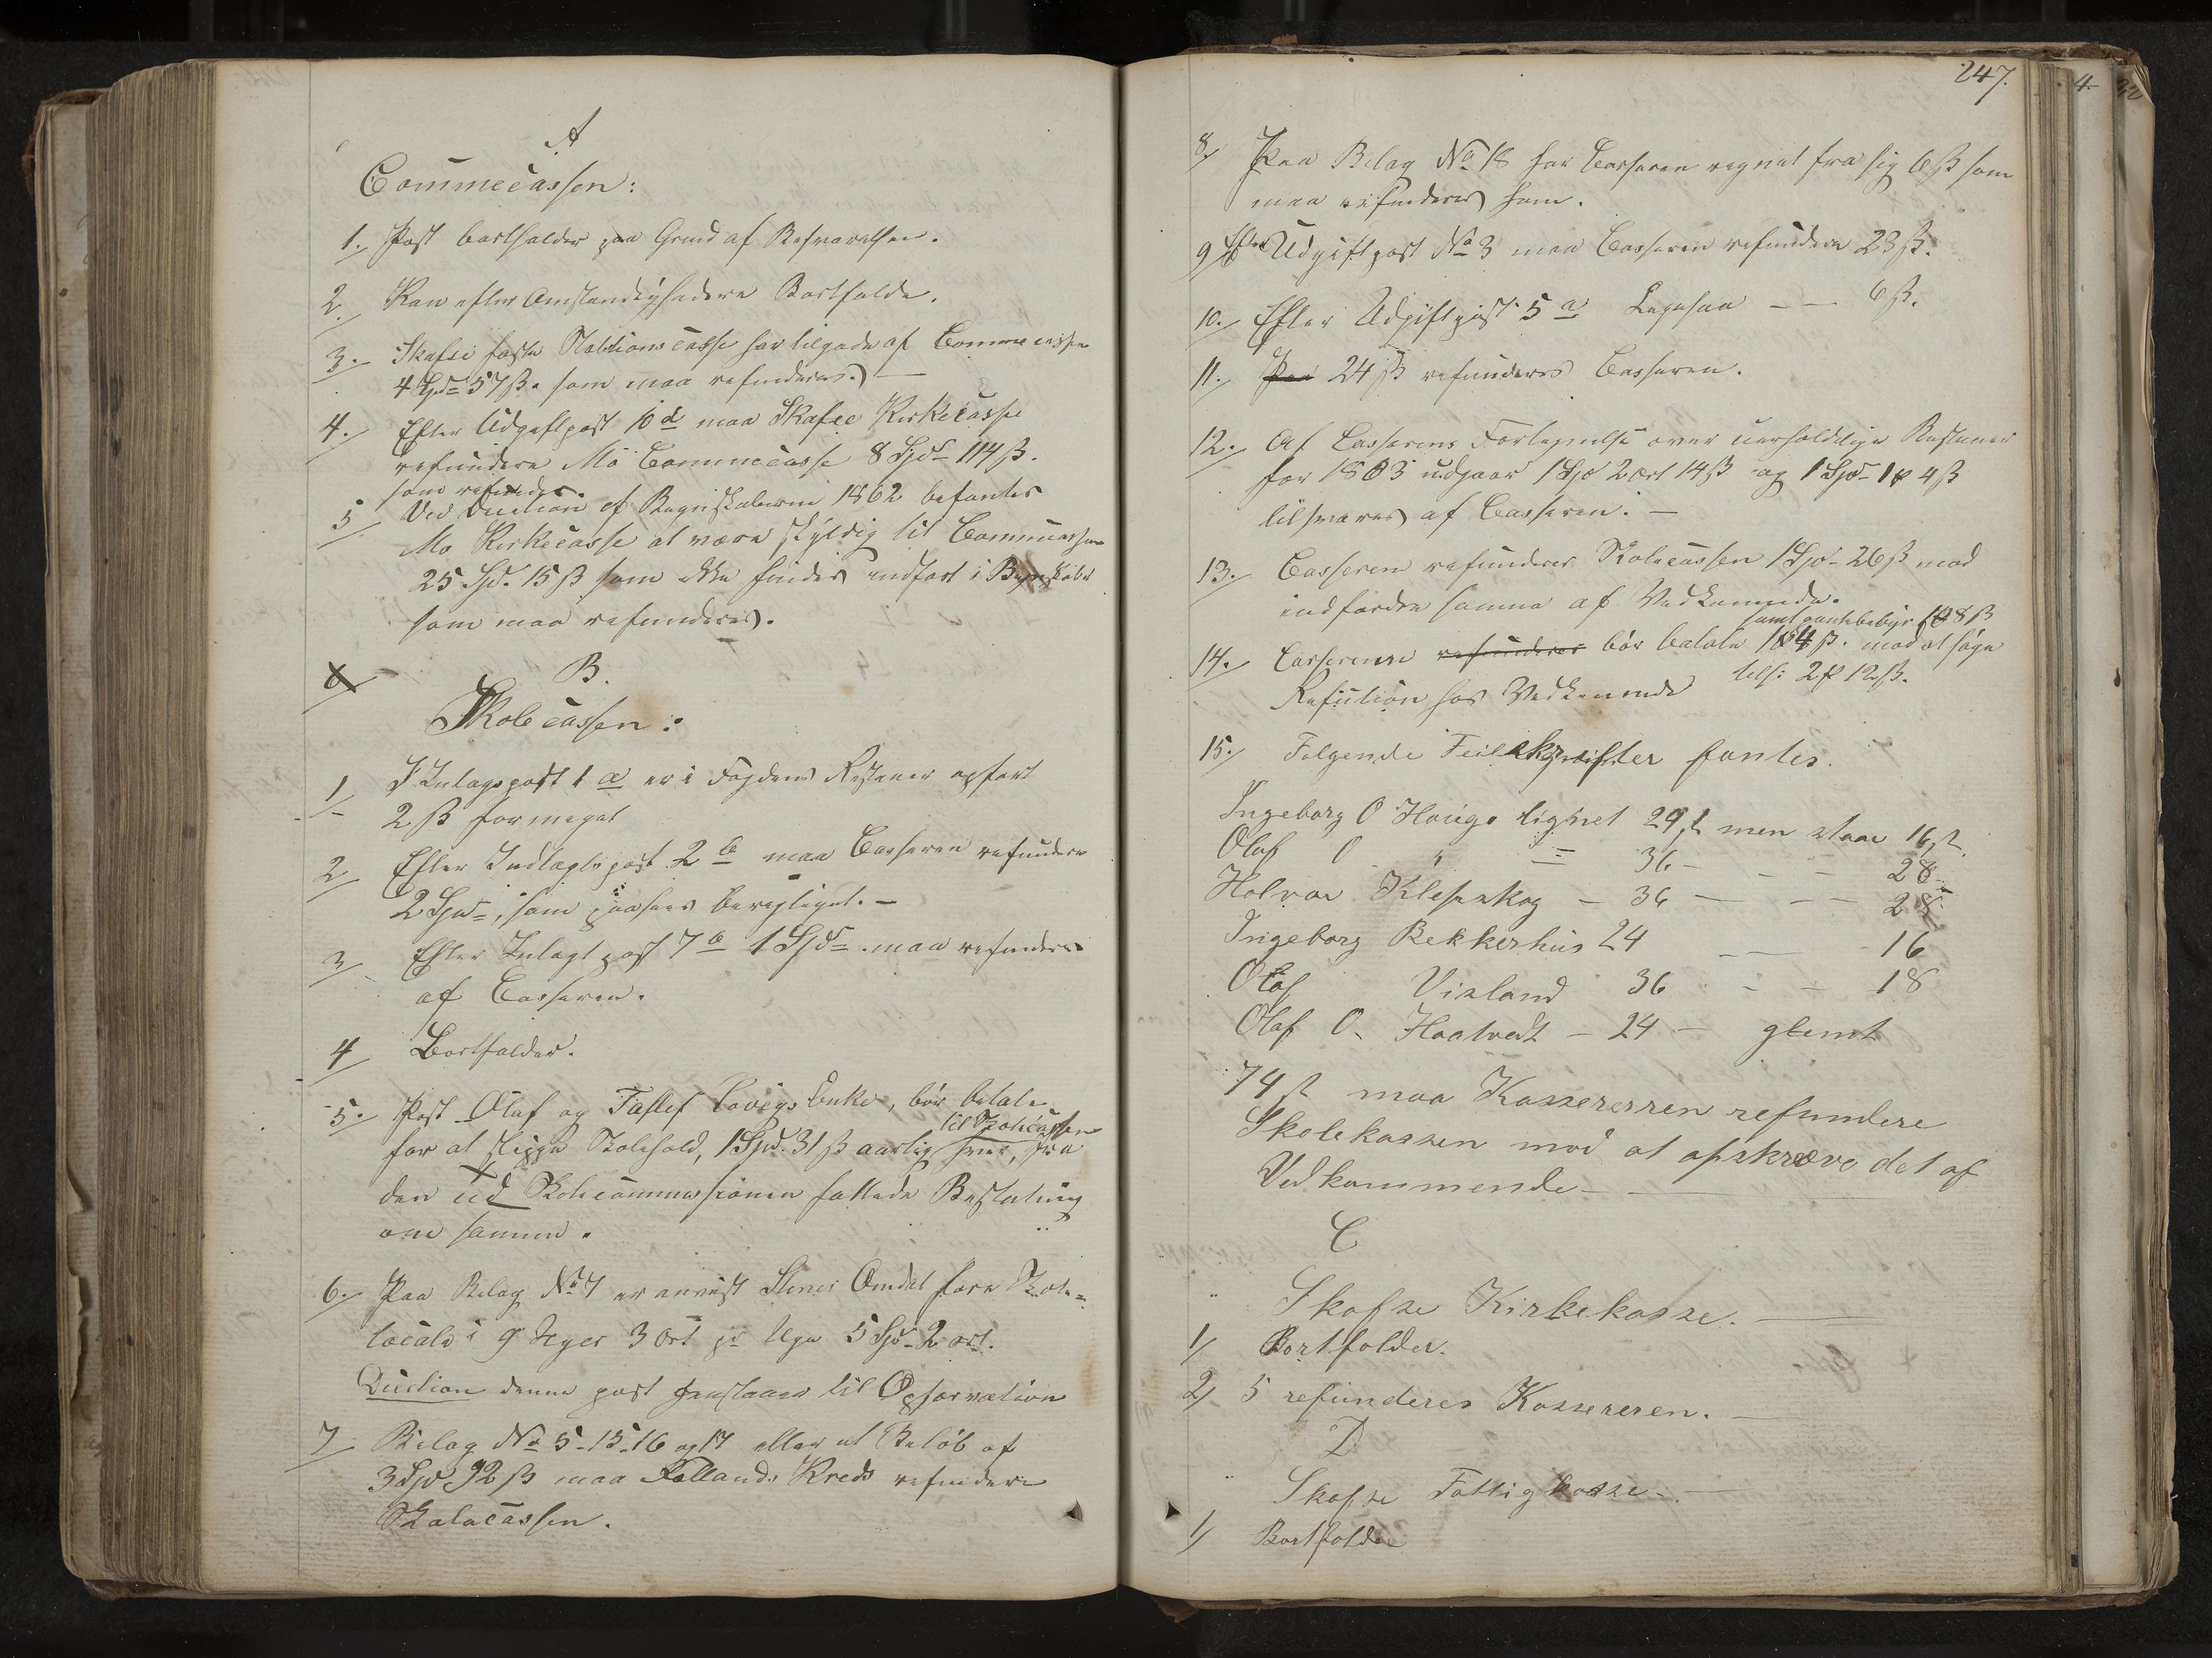 A
Commecassen:
1. Post bortfalder paa Grund af Besvarelsen.
2. Kan efter Omstændighederne Bortfalde.
3. Skafse faste Stations casse har tilgode af Commecassen
4 Spd 57 ß. som maa refunderes.) —
4. Efter Udgiftpost 10 d maa Skafse Kirkecasse
refundere Mo Commecasse 8 Spd 114 ß.
som refundes.
5/ Ved Decition af Regnskaberne 1862 befantes
Mo Kirkecasse at være skyldig til Commecassen
25 Spd. 15 ß som ikke findes indført i Regnskabet
som maa refunderes.
B.
Skolecassen:
1/ I Intagspost 1 a er i Fogdens Restancer opført
2 ß formeget
2/ Efter Indtagts post 2 b maa Casseren refundere
2 Spd, som paasees bevegliget. —
3/ Efter Intagt post 7 b 1 Spd maa refunderes
af Casseren.
4/ Bortfalder.
5. Post Olaf og Taflef Lovegs Enke, bør betale
til Skolecassen
for at slippe Skolehold, 1 Spd. 31 ß aarlig hver, fra
den ud Skolecommissionen fattede Beslutning
om samme.
6. Paa Bilag No 4 er anvist Stener Omdal for Skole=
locale i 9 Uger 3 Ort pr Uge 5 Spd 2 ort.
Decition denne post henstaaer til Opservation
7/ Bilag No 5-15-16 og 17 eller et Beløb af
3 Spd 92 ß maa Follands Kreds refundere
Skolecassen.
247.
8/ Paa Bilag No 18 har Casseren regnet fra sig 6 ß som
maa refunderes ham.
9/ Efter Udgiftpost No 3 maa Casseren refundere 23 ß.
10./ Efter Udgiftpost 5 a Ligesaa — — 6 ß.
11./ Paa 24 ß refunderes Casseren.
12./ Af Casserens Fortegnelse over uerholdelige Restancer
for 1863 udgaar 1 Spd 2 ort 14 ß og 1 Spd 1 4 ß
tilsvares af Casseren. —
13./ Casseren refunderer Skolecassen 1 Spd 26 ß mod
indfordre samme af Vedkommende.
14./ Casserene refunderer bør betale 104 ß. mod at søge
Refution hos Vedkomende tils: 2 12 ß.
15./ Følgende Feilskrifter fantes.
Ingeborg O Hougo lignet 29 ß men staar 16 ß.
Olaf O " = 36 — — — 28
Holvor Klepskog — 36 — — — 28
Ingeborg Bekkerhus 24 — — 16
Olaf Visland 36 — — 18
Olaf O. Haatvedt — 24 — glemt
74 ß maa Kassererren refundere
Skolekassen mod at afskræve det af
Vedkommende —
C
Skafse Kirkekasse. —
1/ Bortfalder.
2/ 5 refunderes Kassereren. —
D
Skafse Fattigkasse. —
1/ Bortfalder